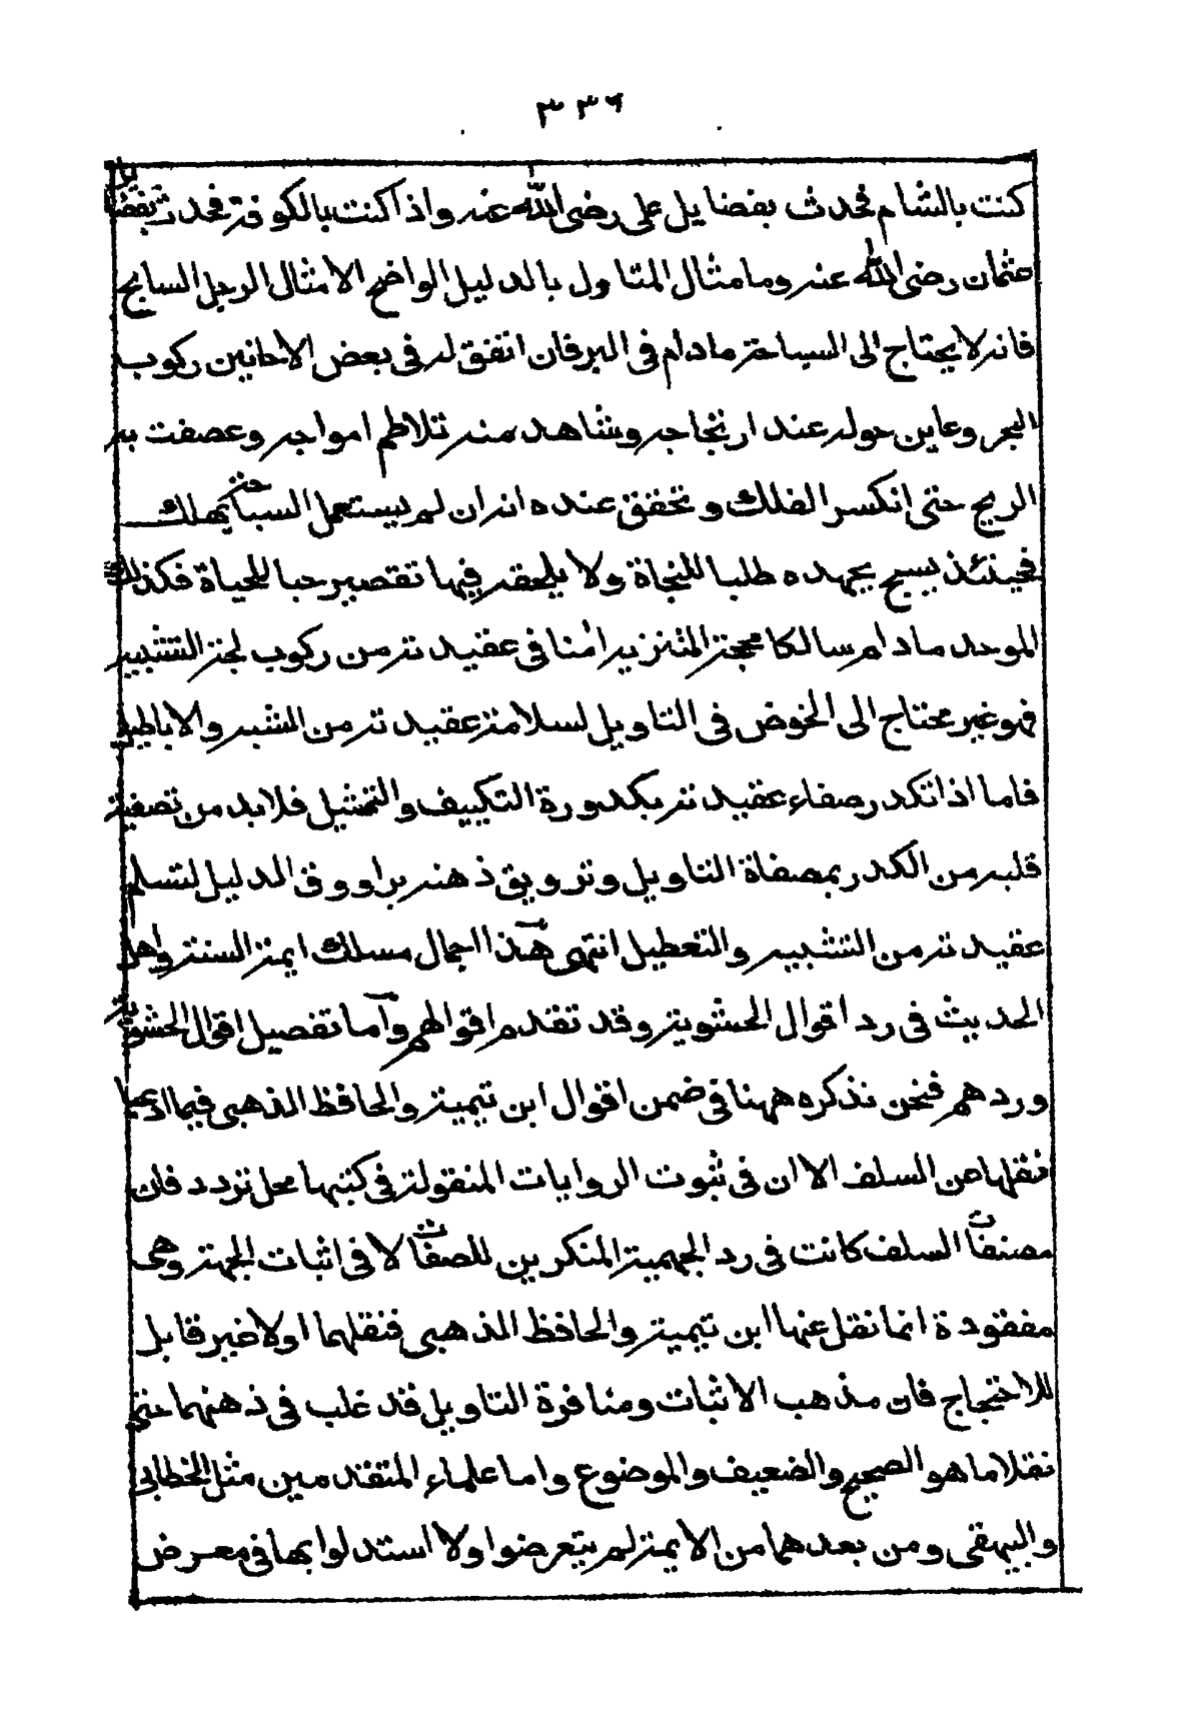 ٣٣٦
كنت بالشام فحدث بفضايل على رضى الله عنه واذا كنت بالكوفة فحدث بفضايل
عثمان رضى الله عنه وما مثال المتاول بالدليل الواضح الا مثال الرجل السابح
فانه لا يحتاج الى السباحة مادام فى البر فان اتفق له فى بعض الاحانين ركوب
البحر وعاين حوله عند ارتجاجه وشاهد منه تلاطم امواجه وعصفت به
الريح حتى انكسر الفلك وتحقق عنده انه ان لم يستعمل السباحة يهلك
فحينئذ يسبح بجهده طلبا للنجاة ولا يلحقه فيها تقصير حبا للحياة فكذلك
الموحد مادام سالكا محجة التنزيه امنا فى عقيدته من ركوب لجة التشبيه
فهو غير محتاج الى الخوض فى التاويل لسلامة عقيدته من الشبه والاباطيل
فاما اذا تكدر صفاء عقيدته بكدورة التكييف والتمثيل فلا بد من تصفية
قلبه من الكدر بمصفاة التاويل وترويق ذهنه براووق الدليل لتسلم
عقيدته من التشبيه والتعطيل انتهى هذا اجمال مسلك ايمة السنة واهل
الحديث فى رد اقوال الحشوية وقد تقدم اقوالهم واما تفصيل اقوال الحشوية
وردهم فنحن نذكره ههنا فى ضمن اقوال ابن تيمية والحافظ الذهبى فيما ادعيا
نقلها من السلف الا ان فى ثبوت الروايات المنقولة فى كتبها محل تردد فان
مصنفات السلف كانت فى رد الجهمية المنكرين للصفات لا فى اثبات الجهة وهى
مفقودة انما نقل عنها ابن تيمية والحافظ الذهبى فنقلهما اولا غير قابل
للاحتجاج فان مذهب الاثبات ومنافرة التاويل قد غلب فى ذهنهما حتى
نقلا ما هو الصحيح والضعيف والموضوع واما علماء المتقدمين مثل الخطابى
والبيهقى ومن بعدهما من الايمة لم يتعرضوا ولا استدلوا بها فى معرض